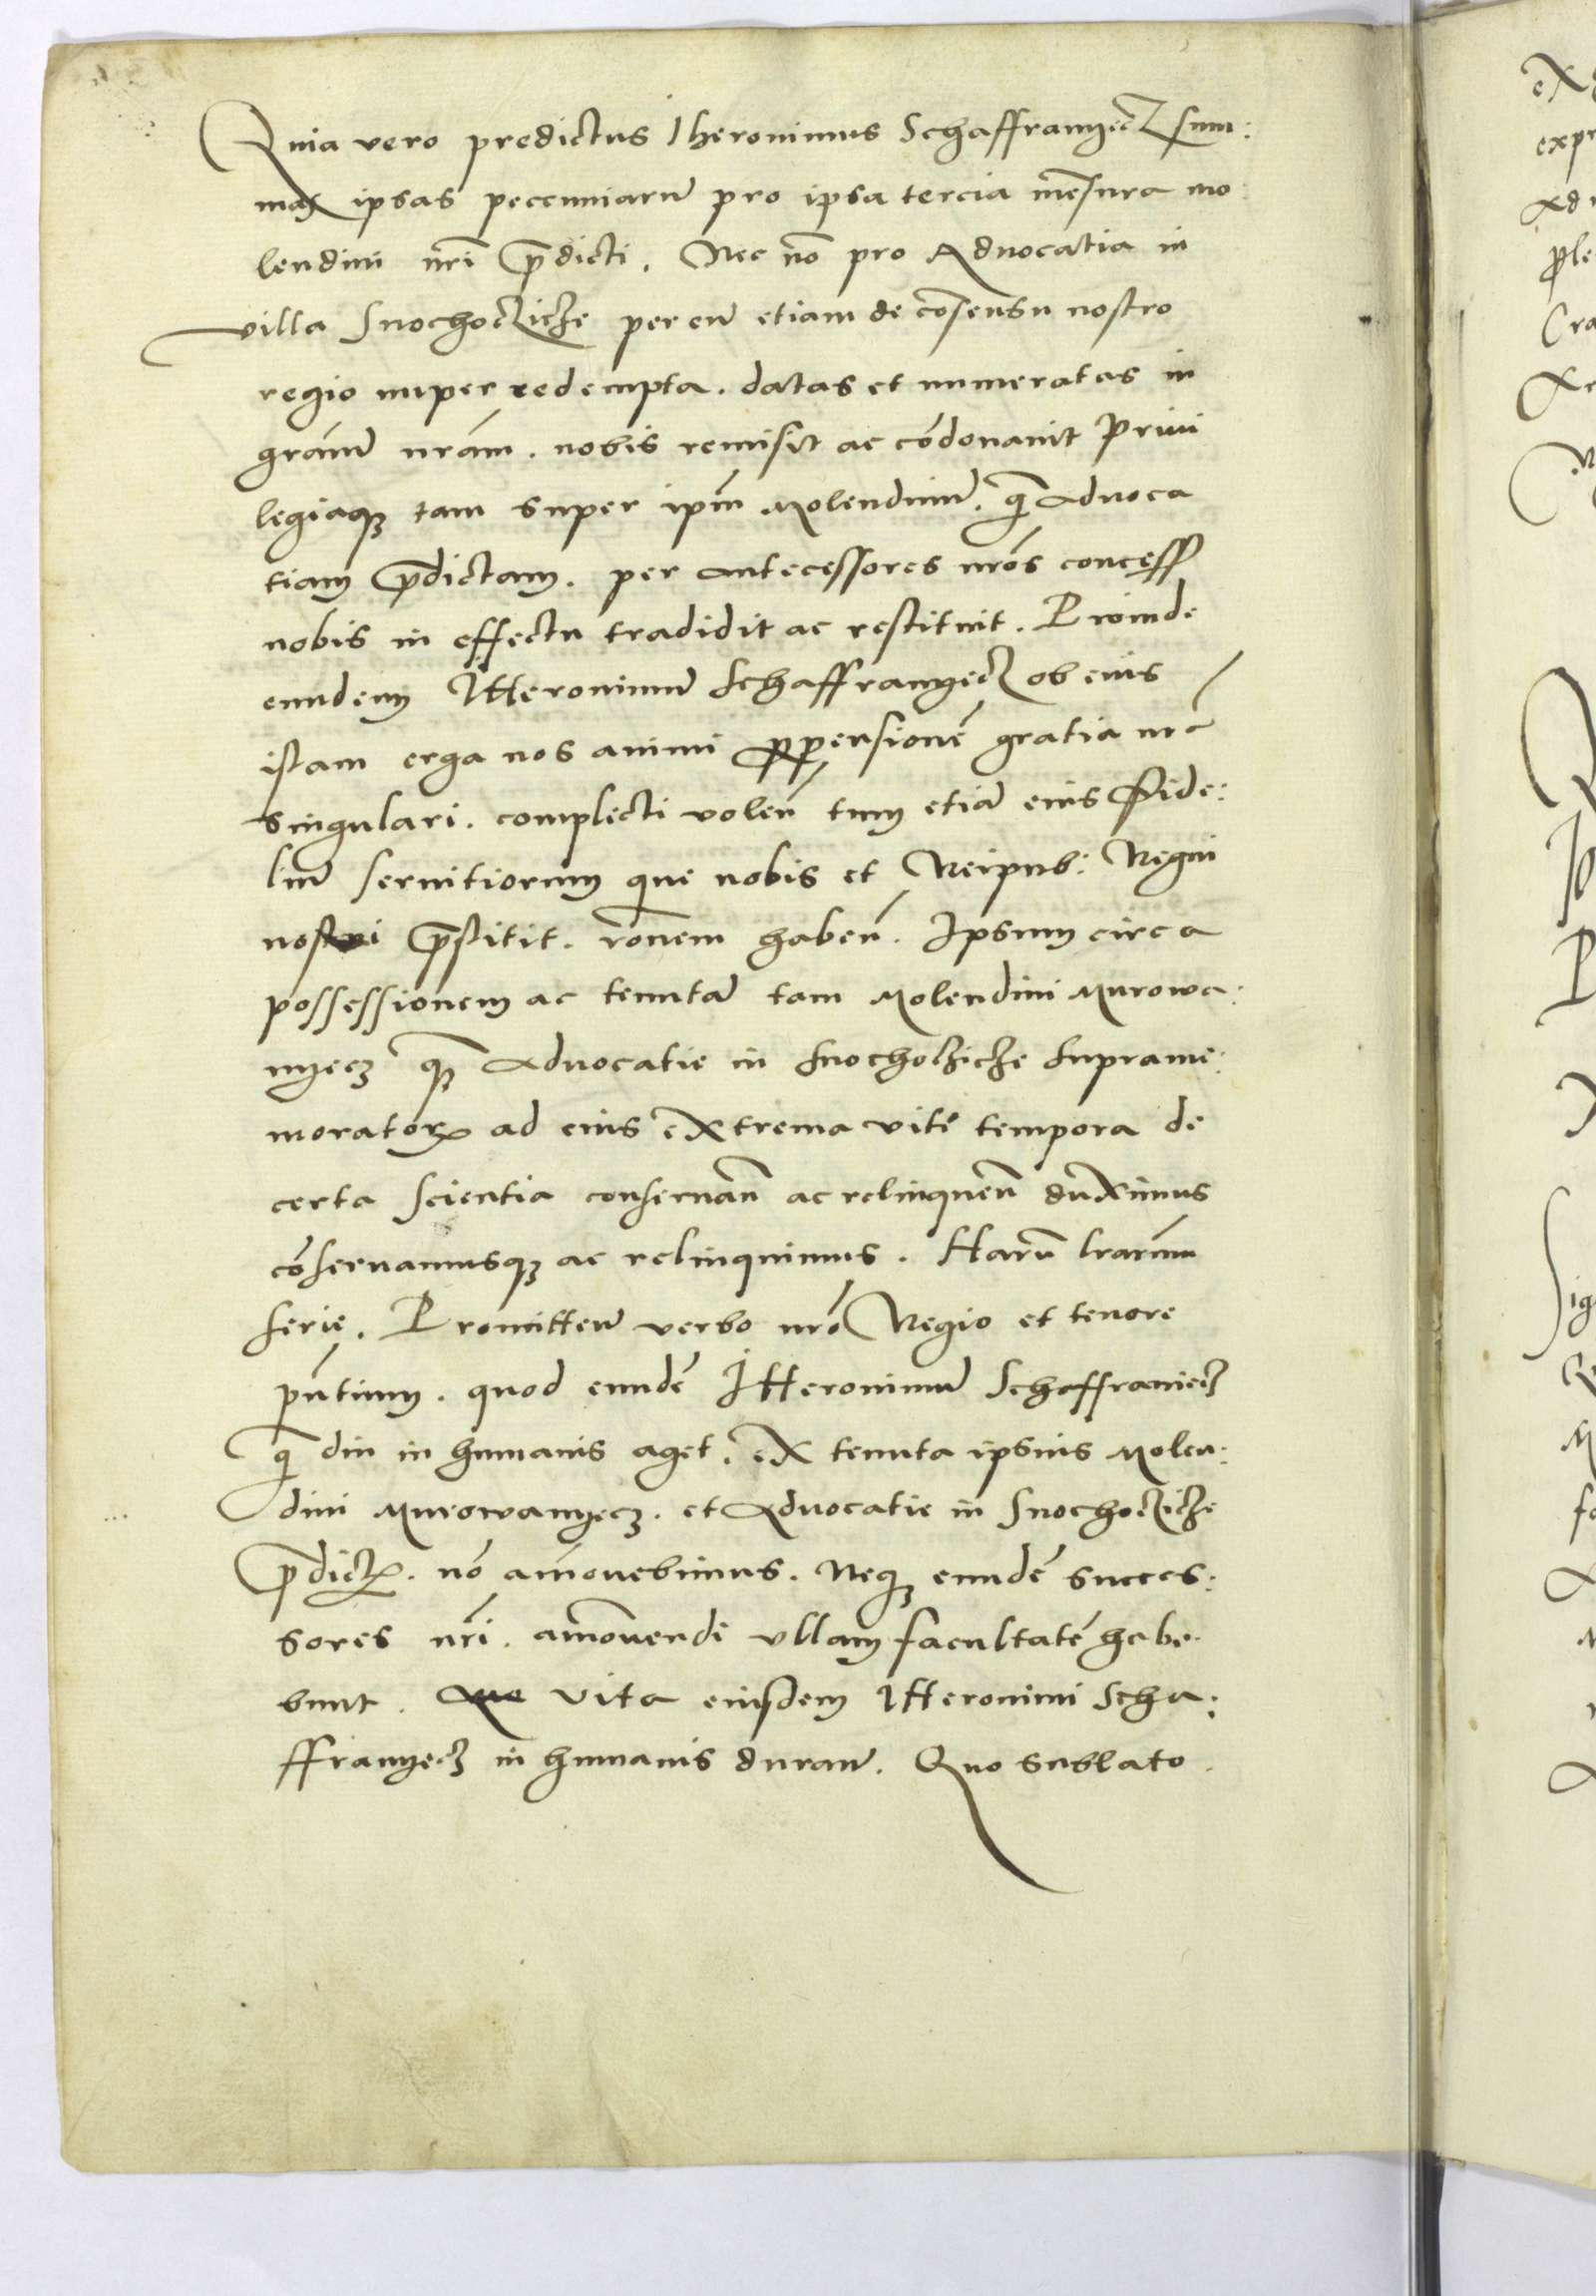 Quia vero predictus Iheronimus Schaffranyecz sum:
mas ipsas peccuniarũ pro ipsa tercia mẽsura mo
lendini nr̃i p̃dicti. Nec nõ pro Aduocatia in
villa Snochoczicze per eũ etiam de cõsensu nostro
regio nuper redempta. datas et numeratas in
gram̃ nram̃. nobis remisit ac cõdonauit Priui
legiaqȝ tam super ipm̃ Molendinũ. q̃ Aduoca
tiam p̃dictam. per antecessores nr̃os concess̃
nobis in effectu tradidit ac restituit. Proinde
eundem Hieronimũ Schaffranyecz ob eius
istam erga nos animi propensionẽ gratia nr̃a
singulari. complecti voleñ tum etiã eius Fide:
liũ seruitiorum que nobis et Reipub: Regni
nostri p̃stitit. rõnem habeñ. Ipsum circa
possessionem ac tenutã tam Molendini Murowa:
nyecz qȝ Aduocatie in Snocholzicze suprame:
moratorꝝ ad eius extrema vite tempora de
certa scientia conseruañ ac relinqueñ duximus
cõseruamusqȝ ac relinquimus. Harũ lr̃arum
serie. Promitteñ verbo nr̃o Regio et tenore
pñtium. quod eundẽ Hieronimũ Schaffraniecz
q̃ diu in humanis aget. ex tenuta ipsius Molen:
dini Murowanyecz. et Aduocatie in Snochoczicze
p̃dictꝝ. nõ amouebimus. Neqȝ eundẽ succes:
sores nr̃i. amouendi vllam facultatẽ habe
bunt. Vita eiusdem Hieronimi Scha:
ffranyecz in humanis durañ. Quo sublato.